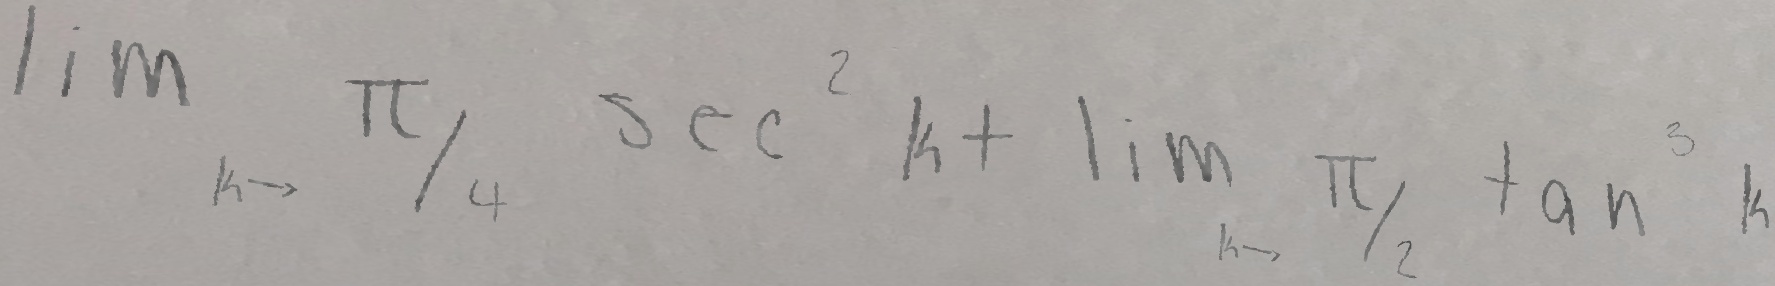 lim k→ π/4 sec² k + lim k→ π/2 tan³ k